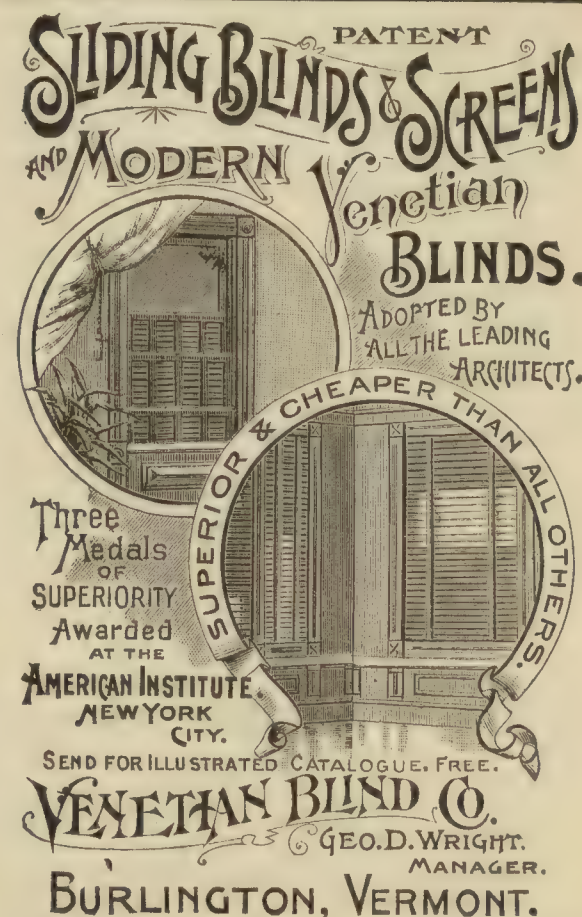 PATENT
SLIDING BLINDS & SCREENS
AND MODERN Venetian
BLINDS.
ADOPTED BY
ALL THE LEADING
ARCHITECTS.
SUPERIOR & CHEAPER THAN ALL OTHERS.
Three
Medals
OF
SUPERIORITY
Awarded
AT THE
AMERICAN INSTITUTE
NEW YORK
CITY.
SEND FOR ILLUSTRATED CATALOGUE. FREE.
VENETIAN BLIND CO.
GEO. D. WRIGHT.
MANAGER.
BURLINGTON, VERMONT.